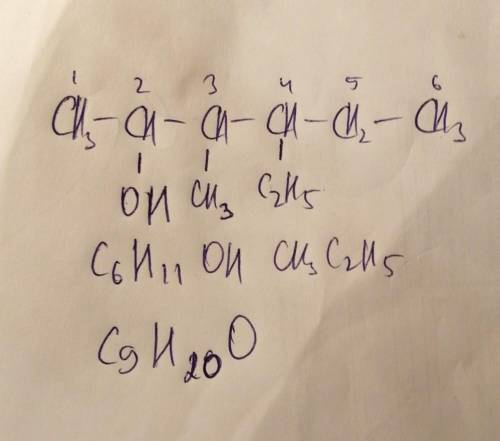 1 2 3 4 5 6
CH3-CH-CH-CH-CH2-CH3
OH CH3 C2H5
C6H11 OH CH3 C2H5
C9H20O